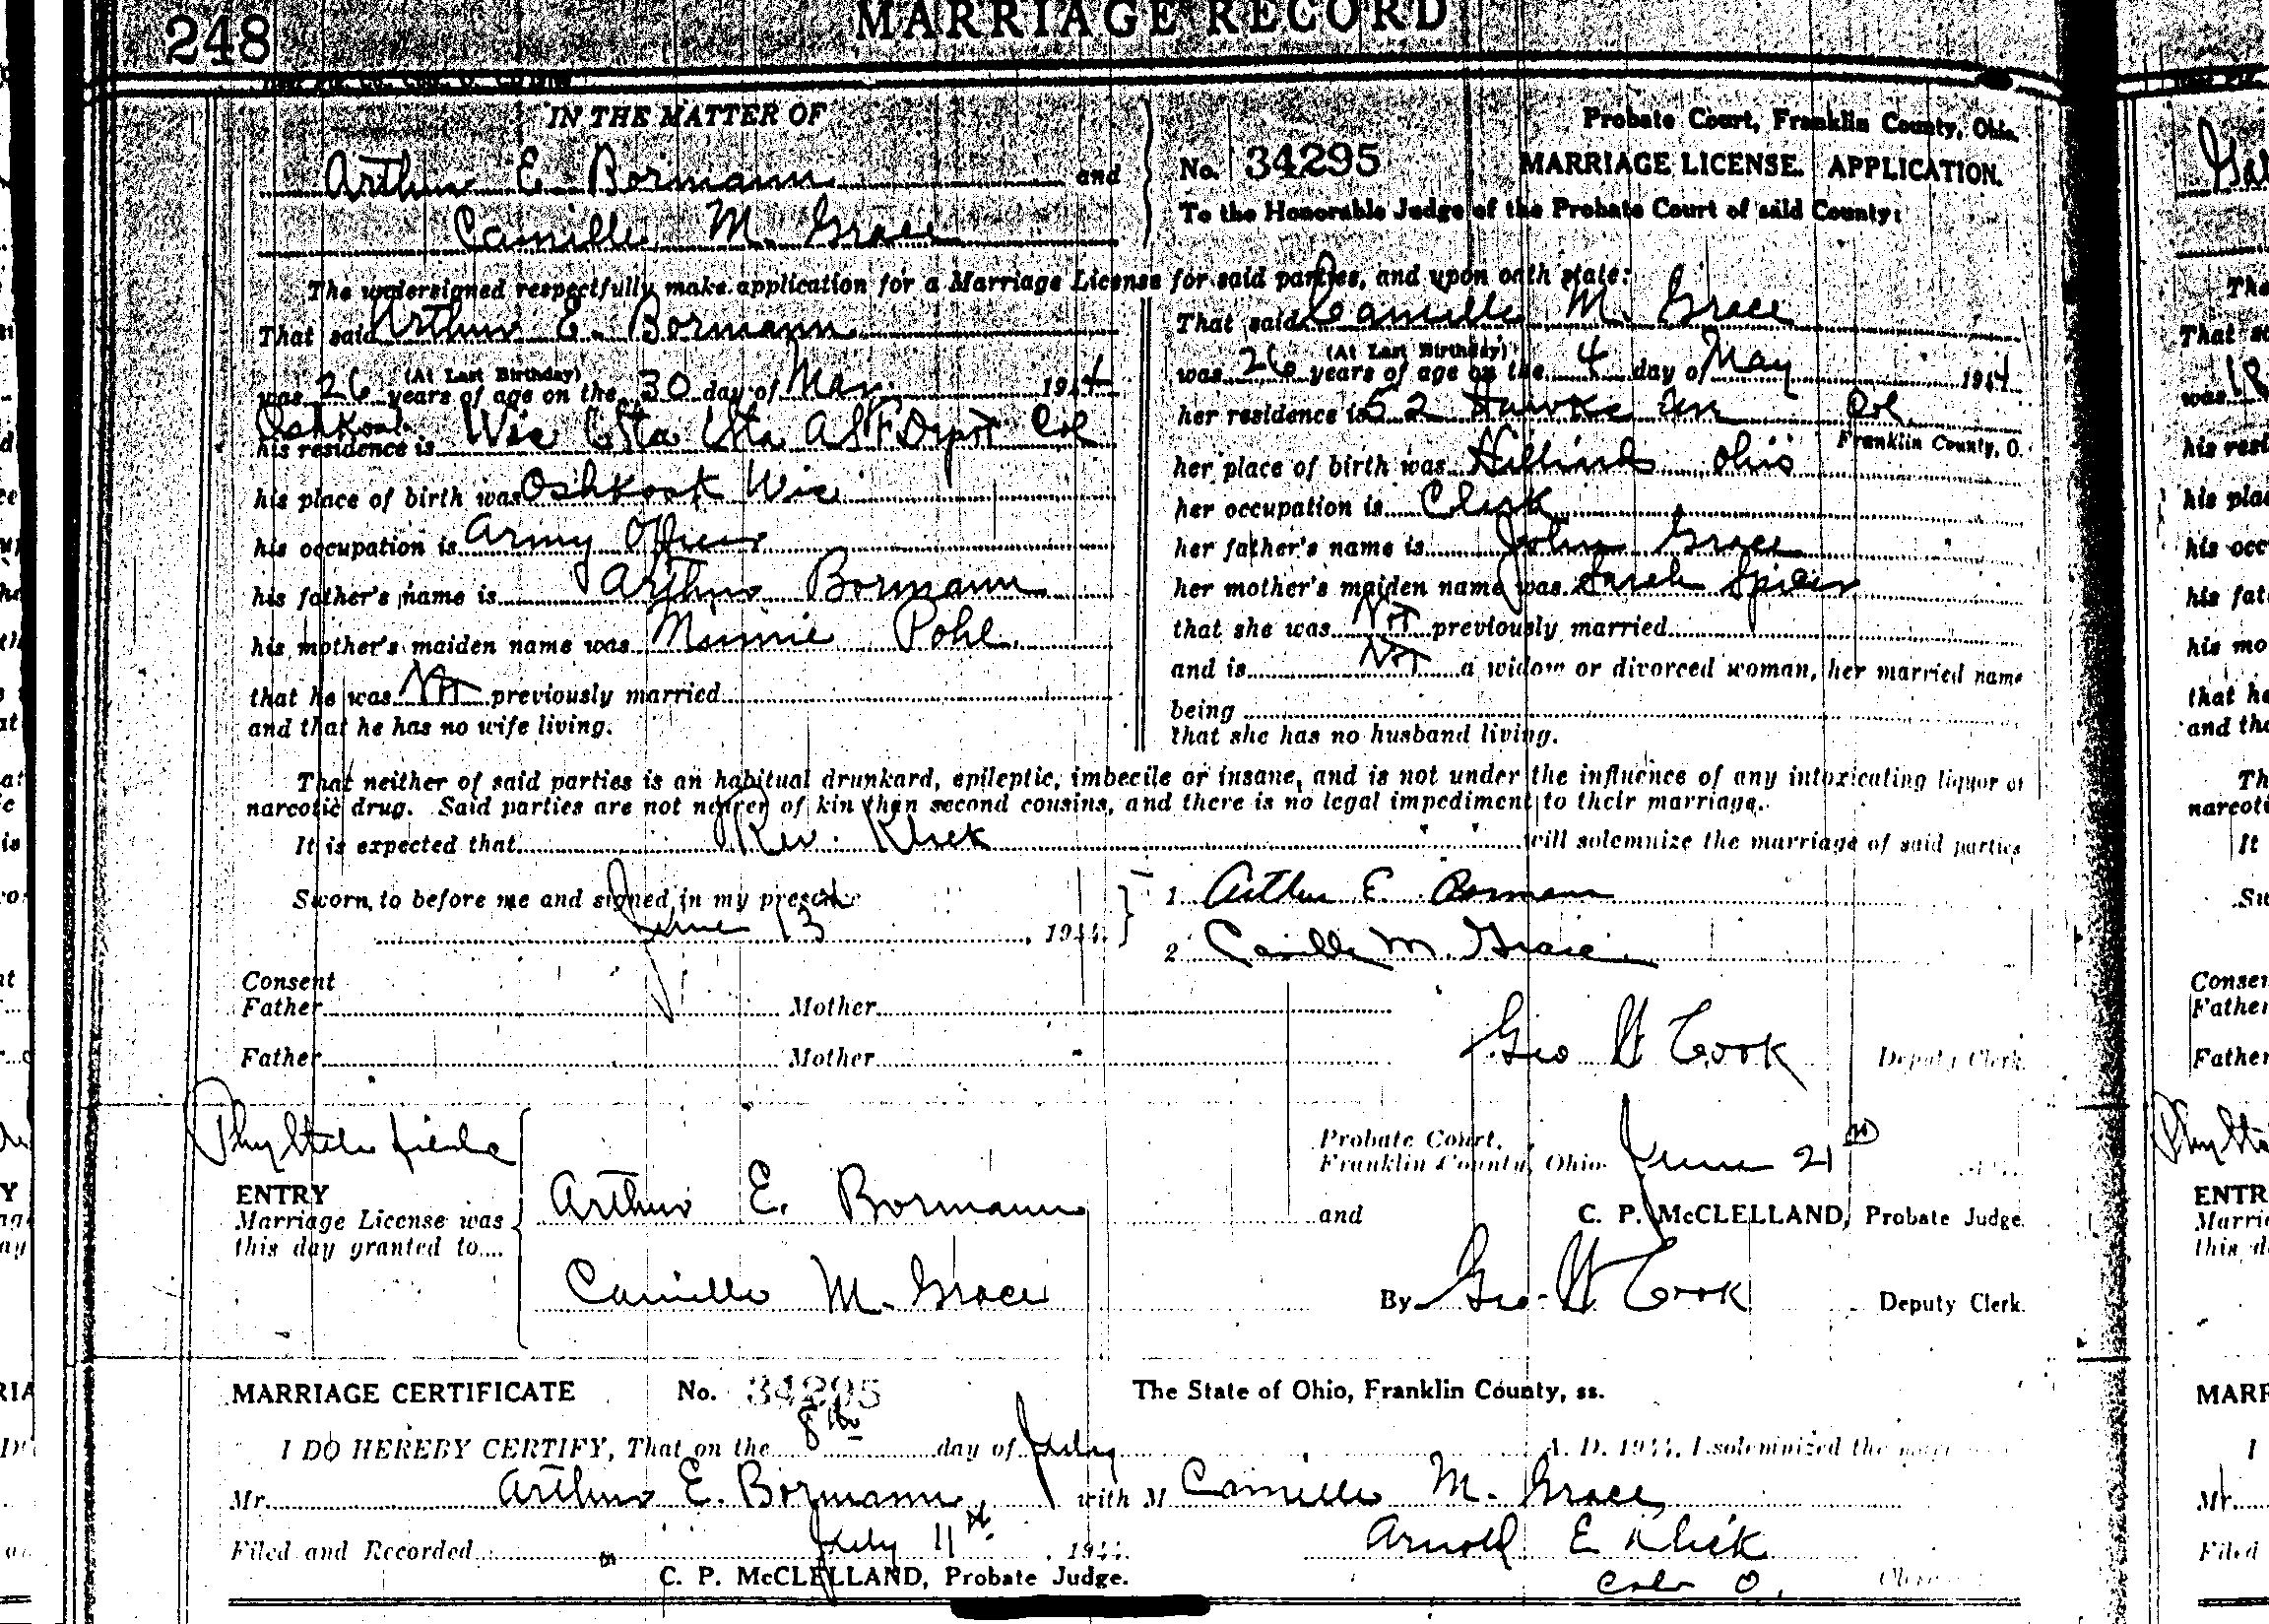 248
MARRIAGE RECORD
IN THE MATTER OF
Arthur E. Bormann and
Camille M. Grace
Probate Court, Franklin County, Ohio.
No. 34295 MARRIAGE LICENSE. APPLICATION.
To the Honorable Judge of the Probate Court of said County:
The undersigned respectfully make application for a Marriage License for said parties, and upon oath state:
That said Arthur E. Bormann
(At Last Birthday)
was 26 years of age on the 30 day of 1944
Oshkosh
his residence is Wis Depot Col
his place of birth was Oshkosh Wis
his occupation is Army Officer
his father's name is Arthur Bormann
his mother's maiden name was Minnie Pohl
that he was Not previously married
and that he has no wife living.
That said Camille M. Grace
(At Last Birthday)
was 26 years of age on the 4 day of May 1944
her residence is 52 Hawkes Ave Col
Franklin County, O.
her place of birth was Ohio
her occupation is Clerk
her father's name is John Grace
her mother's maiden name was Sarah
that she was Not previously married
and is Not a widow or divorced woman, her married name
being
that she has no husband living.
That neither of said parties is an habitual drunkard, epileptic, imbecile or insane, and is not under the influence of any intoxicating liquor or
narcotic drug. Said parties are not nearer of kin than second cousins, and there is no legal impediment to their marriage.
It is expected that Rev. Klick will solemnize the marriage of said parties
Sworn to before me and signed in my presence
June 13, 1944.
1 Arthur E. Bormann
2 Camille M. Grace
Consent
Father Mother
Father Mother
Geo W Cook Deputy Clerk
Probate Court,
Franklin County, Ohio June 21
ENTRY
Marriage License was
this day granted to....
Arthur E. Bormann and
Camille M. Grace
C. P. McCLELLAND, Probate Judge.
By Geo. W Cook Deputy Clerk.
MARRIAGE CERTIFICATE No. 34295 The State of Ohio, Franklin County, ss.
I DO HEREBY CERTIFY, That on the 8th day of July A. D. 1944, I solemnized the
Mr. Arthur E. Bormann, with M Camille M. Grace
Filed and Recorded July 11th, 1944. Arnold E Klick
C. P. McCLELLAND, Probate Judge. Cols O.